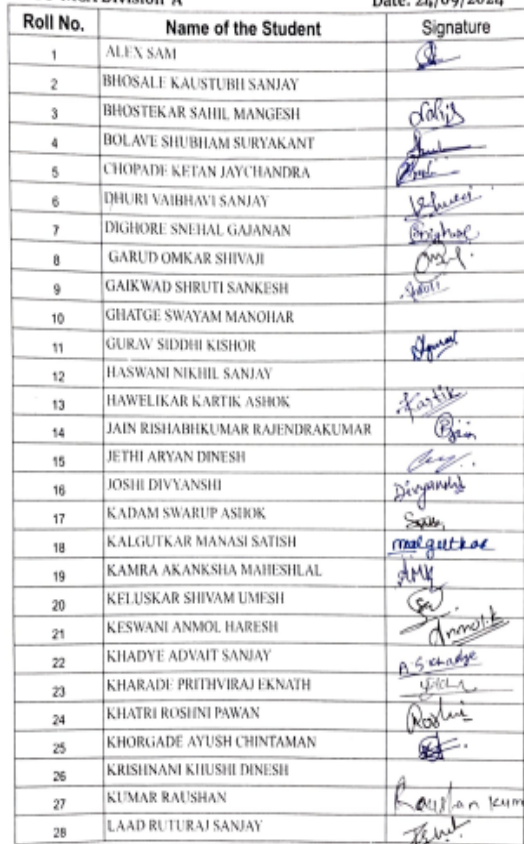 Division A Date: 24/09/2024
Roll No. Name of the Student Signature
1 ALEX SAM
2 BHOSALE KAUSTUBH SANJAY
3 BHOSTEKAR SAHIL MANGESH
4 BOLAVE SHUBHAM SURYAKANT
5 CHOPADE KETAN JAYCHANDRA
6 DHURI VAIBHAVI SANJAY
7 DIGHORE SNEHAL GAJANAN
8 GARUD OMKAR SHIVAJI
9 GAIKWAD SHRUTI SANKESH
10 GHATGE SWAYAM MANOHAR
11 GURAV SIDDHI KISHOR
12 HASWANI NIKHIL SANJAY
13 HAWELIKAR KARTIK ASHOK Kartik
14 JAIN RISHABHKUMAR RAJENDRAKUMAR
15 JETHI ARYAN DINESH
16 JOSHI DIVYANSHI Divyanshi
17 KADAM SWARUP ASHOK
18 KALGUTKAR MANASI SATISH malgutkar
19 KAMRA AKANKSHA MAHESHLAL AMK
20 KELUSKAR SHIVAM UMESH
21 KESWANI ANMOL HARESH
22 KHADYE ADVAIT SANJAY A.S Khadye
23 KHARADE PRITHVIRAJ EKNATH
24 KHATRI ROSHNI PAWAN Roshni
25 KHORGADE AYUSH CHINTAMAN
26 KRISHNANI KHUSHI DINESH
27 KUMAR RAUSHAN Raushan Kum
28 LAAD RUTURAJ SANJAY